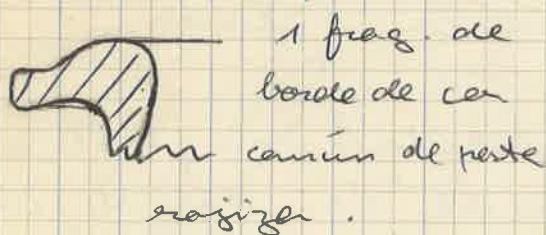 1 frag. de
borde de cer
común de pasta
rojiza.